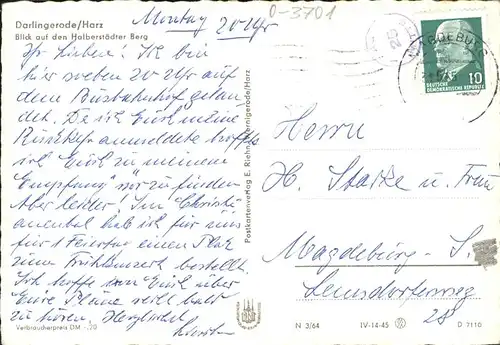 O-3701
Darlingerode/Harz
Blick auf den Halberstädter Berg
Montag 20 Uhr
Ihr Lieben! Ich bin
hier soeben 20 Uhr auf
dem Busbahnhof gelan-
det. Da ich Euch meine
Rückkehr anmeldete hoffte
ich Euch zu meinem
"Empfang" vorzufinden
Aber leider! Im
habe ich für uns
für 1 Feiertag einen Platz
zum bestellt.
Ich hoffe von Euch über
Eure Pläne recht bald
zu hören. Herzlichst
Verbraucherpreis DM -,70
Postkartenverlag E. Riehn, Wernigerode/Harz
MAGDEBURG
DEUTSCHE
DEMOKRATISCHE REPUBLIK
10
Herrn
H. Starke u. Frau
Magdeburg - S.
Lemsdorferweg
28
N 3/64 IV-14-45 D 7110